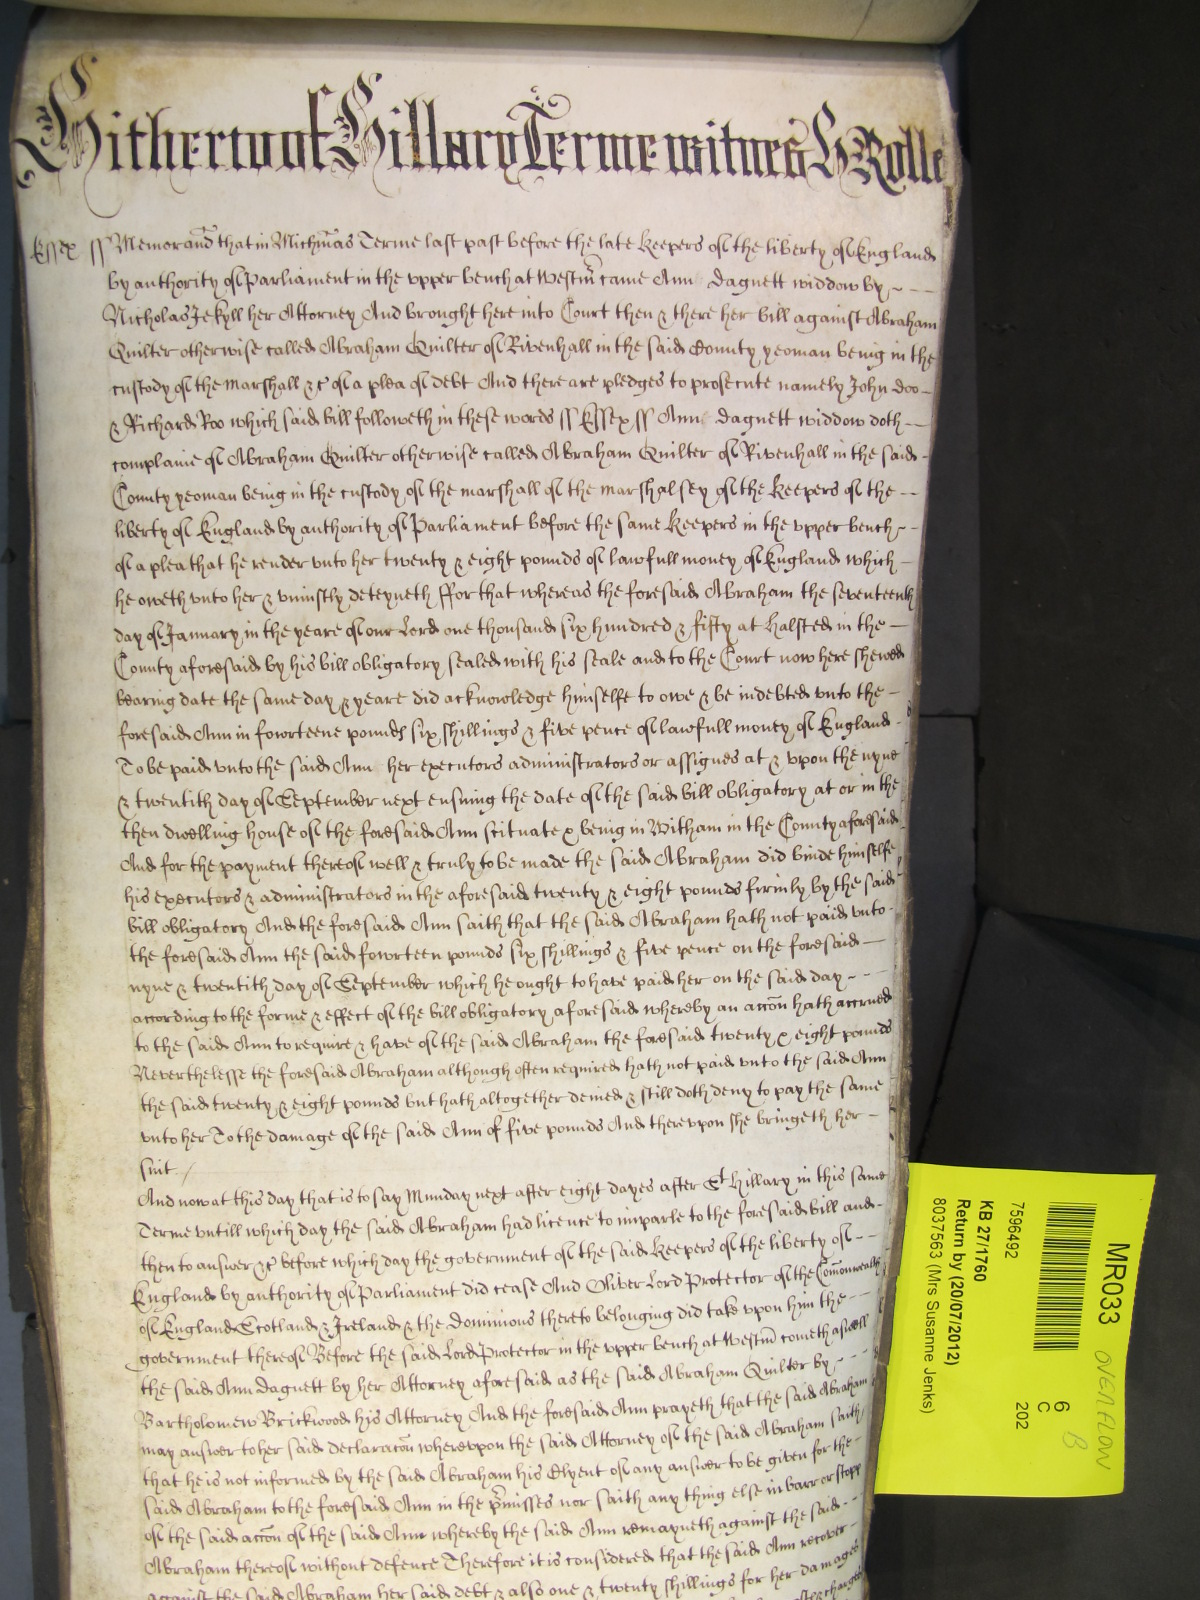 Hitherto of Hillary Terme witnes H Rolle
Essex ss Memorand that in Michmas Terme last past before the late Keepers of the liberty of England
by authority of Parliament in the upper bench at Westm came Ann Dagnett widdow by
Nicholas Jekyll her Attorney And brought here into Court then & there her bill against Abraham
Quilter otherwise called Abraham Quilter of Rivenhall in the said County yeoman being in the
custody of the marshall &c of a plea of debt And there are pledges to prosecute namely John Doo
& Richard Roo which said bill followeth in these words ss Essex ss Ann Dagnett widdow doth
complaine of Abraham Quilter otherwise called Abraham Quilter of Rivenhall in the said
County yeoman being in the custody of the marshall of the marshalsey of the Keepers of the
liberty of England by authority of Parliament before the same Keepers in the upper bench
of a plea that he render unto her twenty & eight pounds of lawfull money of England which
he oweth unto her & uniustly deteyneth ffor that whereas the foresaid Abraham the seventeenth
day of January in the yeare of our Lord one thousand six hundred & fifty at Halsted in the
County aforesaid by his bill obligatory sealed with his seale and to the Court now here shewed
bearing date the same day & yeare did acknowledge himselfe to owe & be indebted unto the
foresaid Ann in fowrteene pounds six shillings & five pence of lawfull money of England
To be paid unto the said Ann her executors administrators or assignes at & upon the nyne
& twentith day of September next ensuing the date of the said bill obligatory at or in the
then dwelling house of the foresaid Ann scituate & being in Witham in the County aforesaid
And for the payment thereof well & truly to be made the said Abraham did binde himselfe
his executors & administrators in the aforesaid twenty & eight pounds firmly by the said
bill obligatory And the foresaid Ann saith that the said Abraham hath not paid unto
the foresaid Ann the said fowrteen pounds six shillings & five pence on the foresaid
nyne & twentith day of September which he ought to have paid her on the said day
according to the forme & effect of the bill obligatory aforesaid whereby an accon hath accrued
to the said Ann to require & have of the said Abraham the foresaid twenty & eight pounds
Neverthelesse the foresaid Abraham although often required hath not paid unto the said Ann
the said twenty & eight pounds but hath altogether denied & still doth deny to pay the same
unto her To the damage of the said Ann of five pounds And thereupon she bringeth her
suit
And now at this day that is to say Munday next after eight dayes after St Hillary in this same
Terme untill which day the said Abraham had licence to imparle to the foresaid bill and
then to answer &c before which day the government of the said Keepers of the liberty of
England by authority of Parliament did cease And Oliver Lord Protector of the Commonwealth
of England Scotland & Ireland & the Dominions thereto belonging did take upon him the
government thereof Before the said Lord Protector in the upper bench at Westm cometh aswell
the said Ann Dagnett by her Attorney aforesaid as the said Abraham Quilter by
Bartholomew Brickwood his Attorney And the foresaid Ann prayeth that the said Abraham
may answer to her said declaracon whereupon the said Attorney of the said Abraham saith
that he is not informed by the said Abraham his Clyent of any answer to be given for the
said Abraham to the foresaid Ann in the pmisses nor saith any thing else in barr or stopp
of the said accon of the said Ann whereby the said Ann remayneth against the said
Abraham thereof without defence Therefore it is considered that the said Ann recover
against the said Abraham her said debt & also one & twenty shillings for her damages
MR033 OVERFLOW
B
6
C
202
7596492
KB 27/1760
Return by (20/07/2012)
8037563 (Mrs Susanne Jenks)